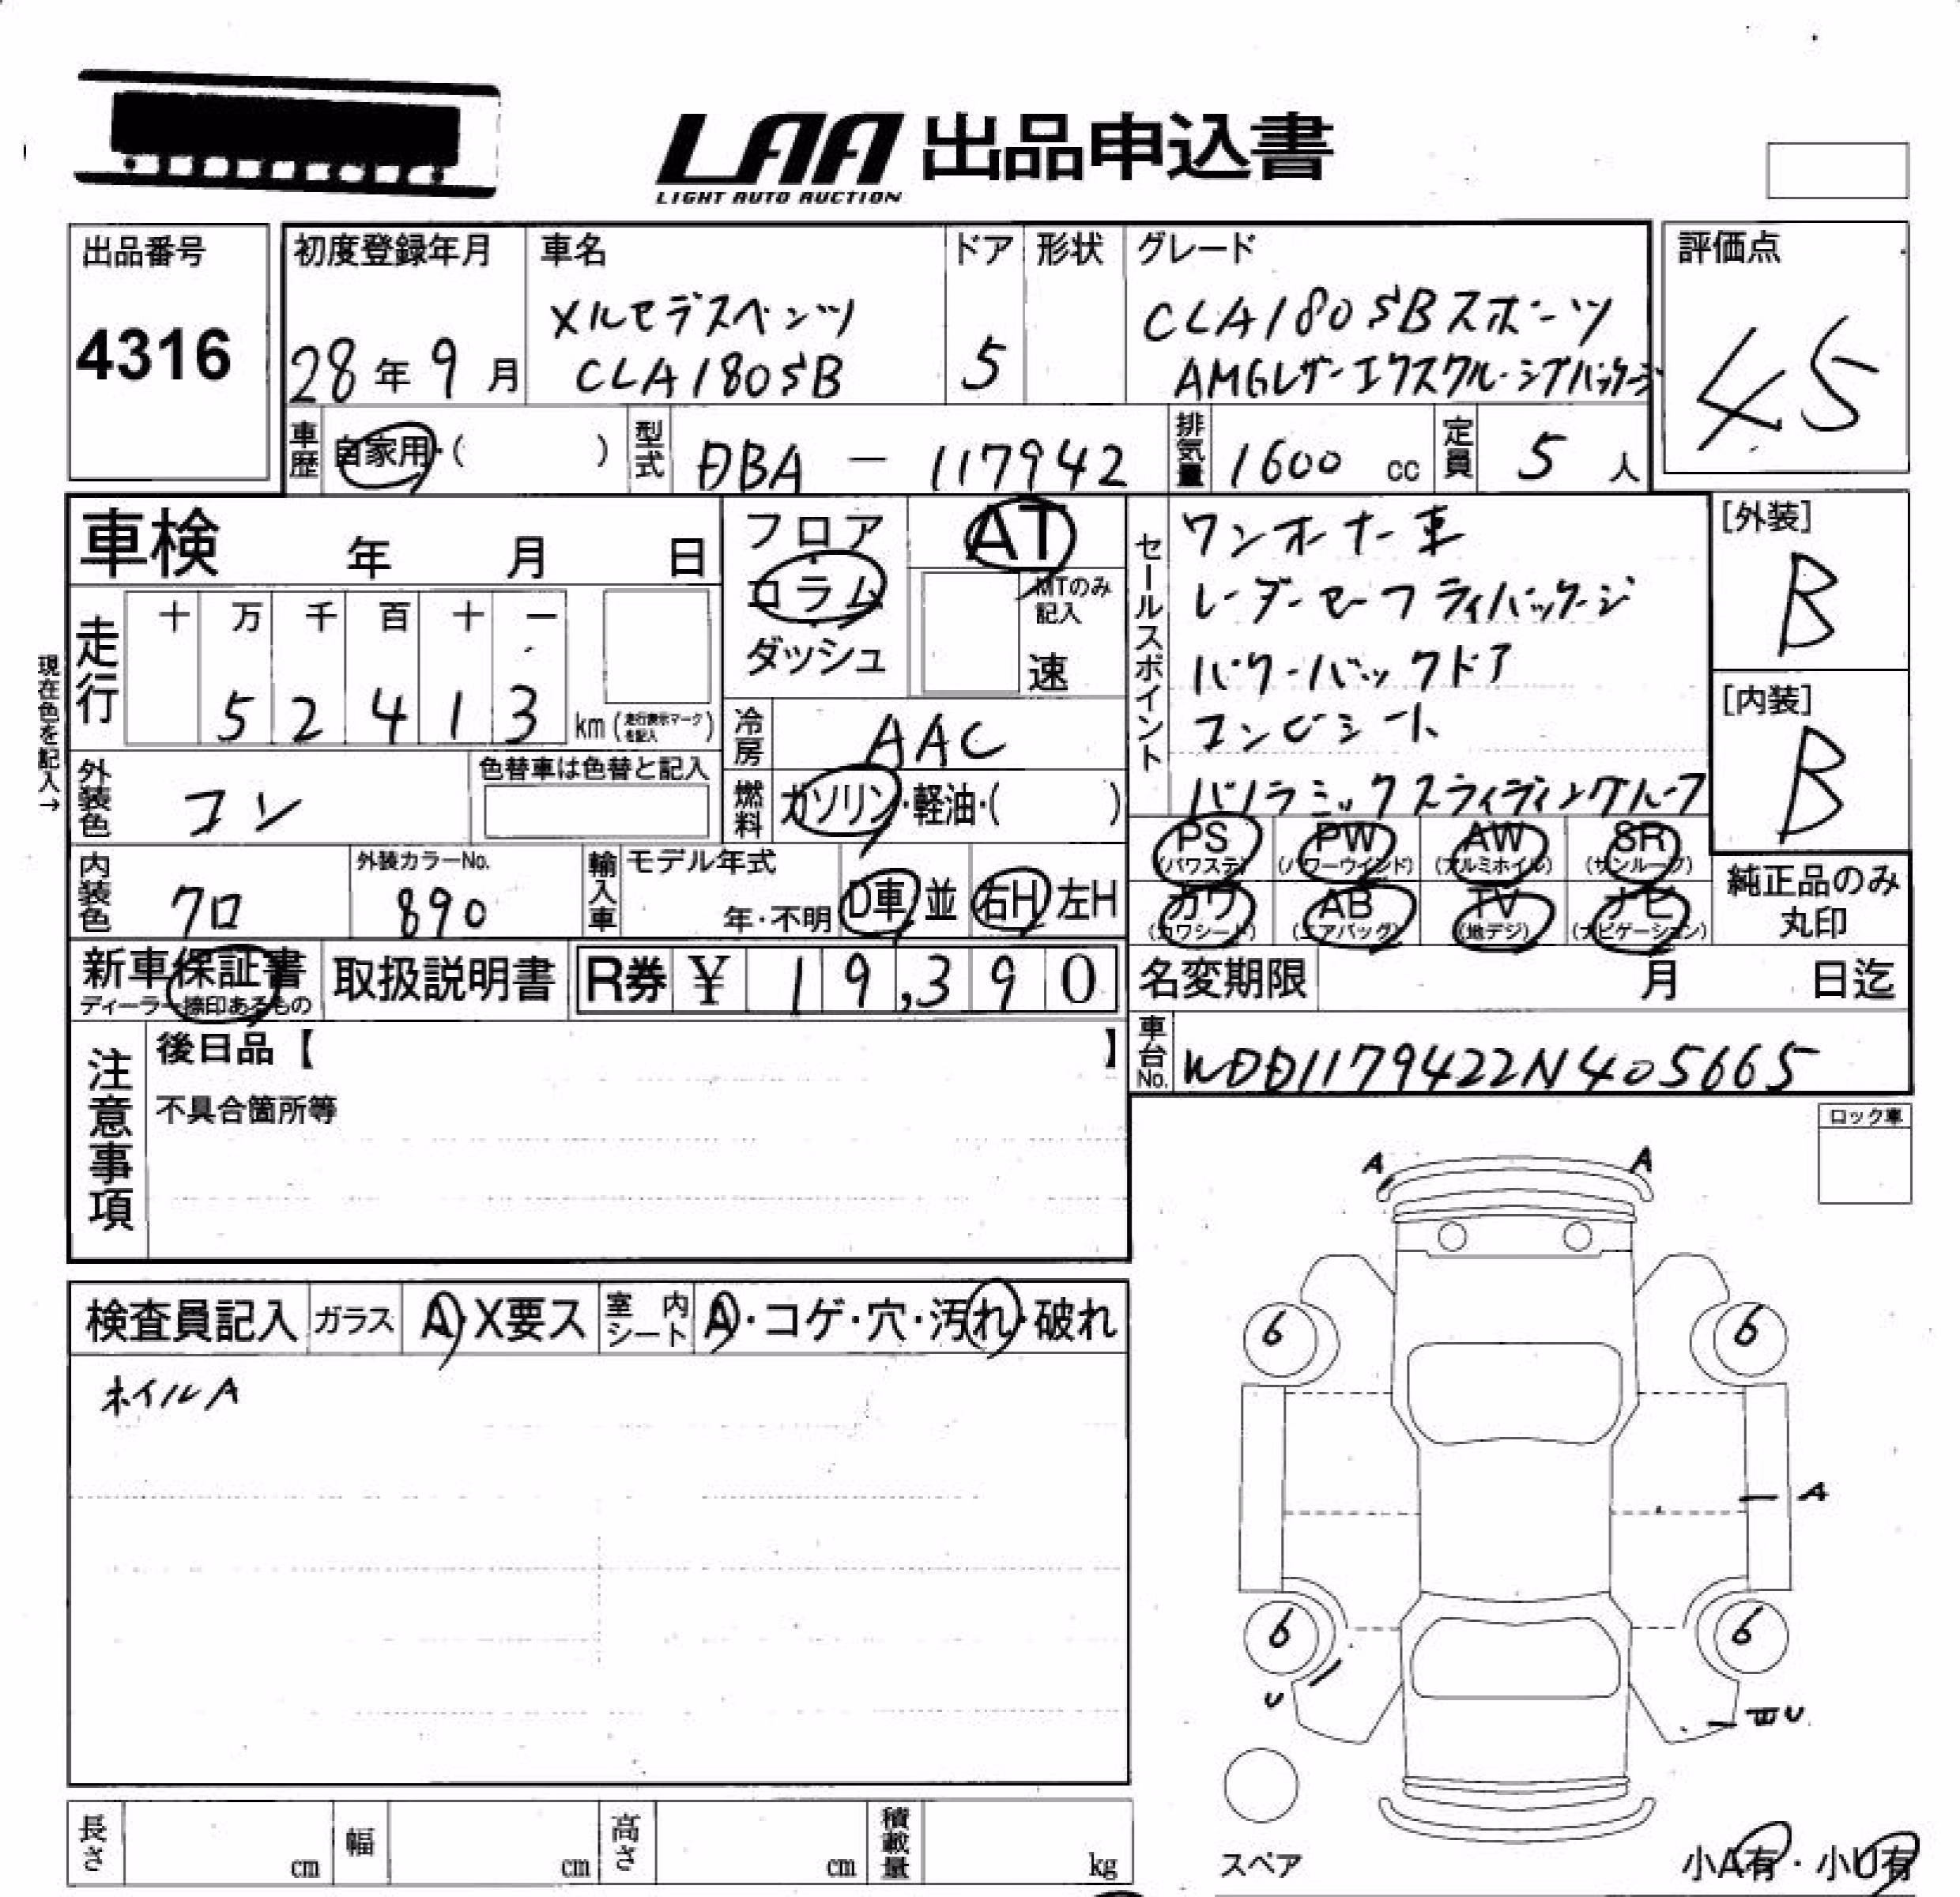 LAA 出品申込書
LIGHT AUTO AUCTION
出品番号
4316
初度登録年月
28年9月
車名
メルセデスベンツ
CLA180SB
ドア
5
形状
グレード
CLA180SBスポーツ
AMGレザーエクスクルーシブパッケージ
評価点
4.5
車歴 自家用・( )
型式 DBA - 117942
排気量 1600 cc
定員 5 人
車検 年 月 日
走行
十 万 千 百 十 一
5 2 4 1 3 km (走行表示マークを記入)
フロア
コラム
ダッシュ
AT
MTのみ記入
速
冷房 AAC
燃料 ガソリン・軽油・( )
現在色を記入→
外装色 コン
色替車は色替と記入
内装色 クロ
外装カラーNo.
890
輸入車 モデル年式
年・不明
D車 並
右H 左H
セールスポイント
ワンオーナー車
レーダーセーフティパッケージ
パワーバックドア
コンビシート
パノラミックスライディングルーフ
[外装]
B
[内装]
B
PS (パワステ)
PW (パワーウインド)
AW (アルミホイル)
SR (サンルーフ)
カワ (カワシート)
AB (エアバッグ)
TV (地デジ)
ナビ (ナビゲーション)
純正品のみ
丸印
新車保証書
ディーラー捺印あるもの
取扱説明書
R券 ¥ 19,390
名変期限 月 日迄
車台No. WDD1179422N405665
注意事項
後日品【 】
不具合箇所等
ロック車
検査員記入
ガラス A・X要ス
室内シート A・コゲ・穴・汚れ・破れ
ホイルA
A A
6 6
A
6 6
U U
スペア
小A有・小U有
長さ cm
幅 cm
高さ cm
積載量 kg